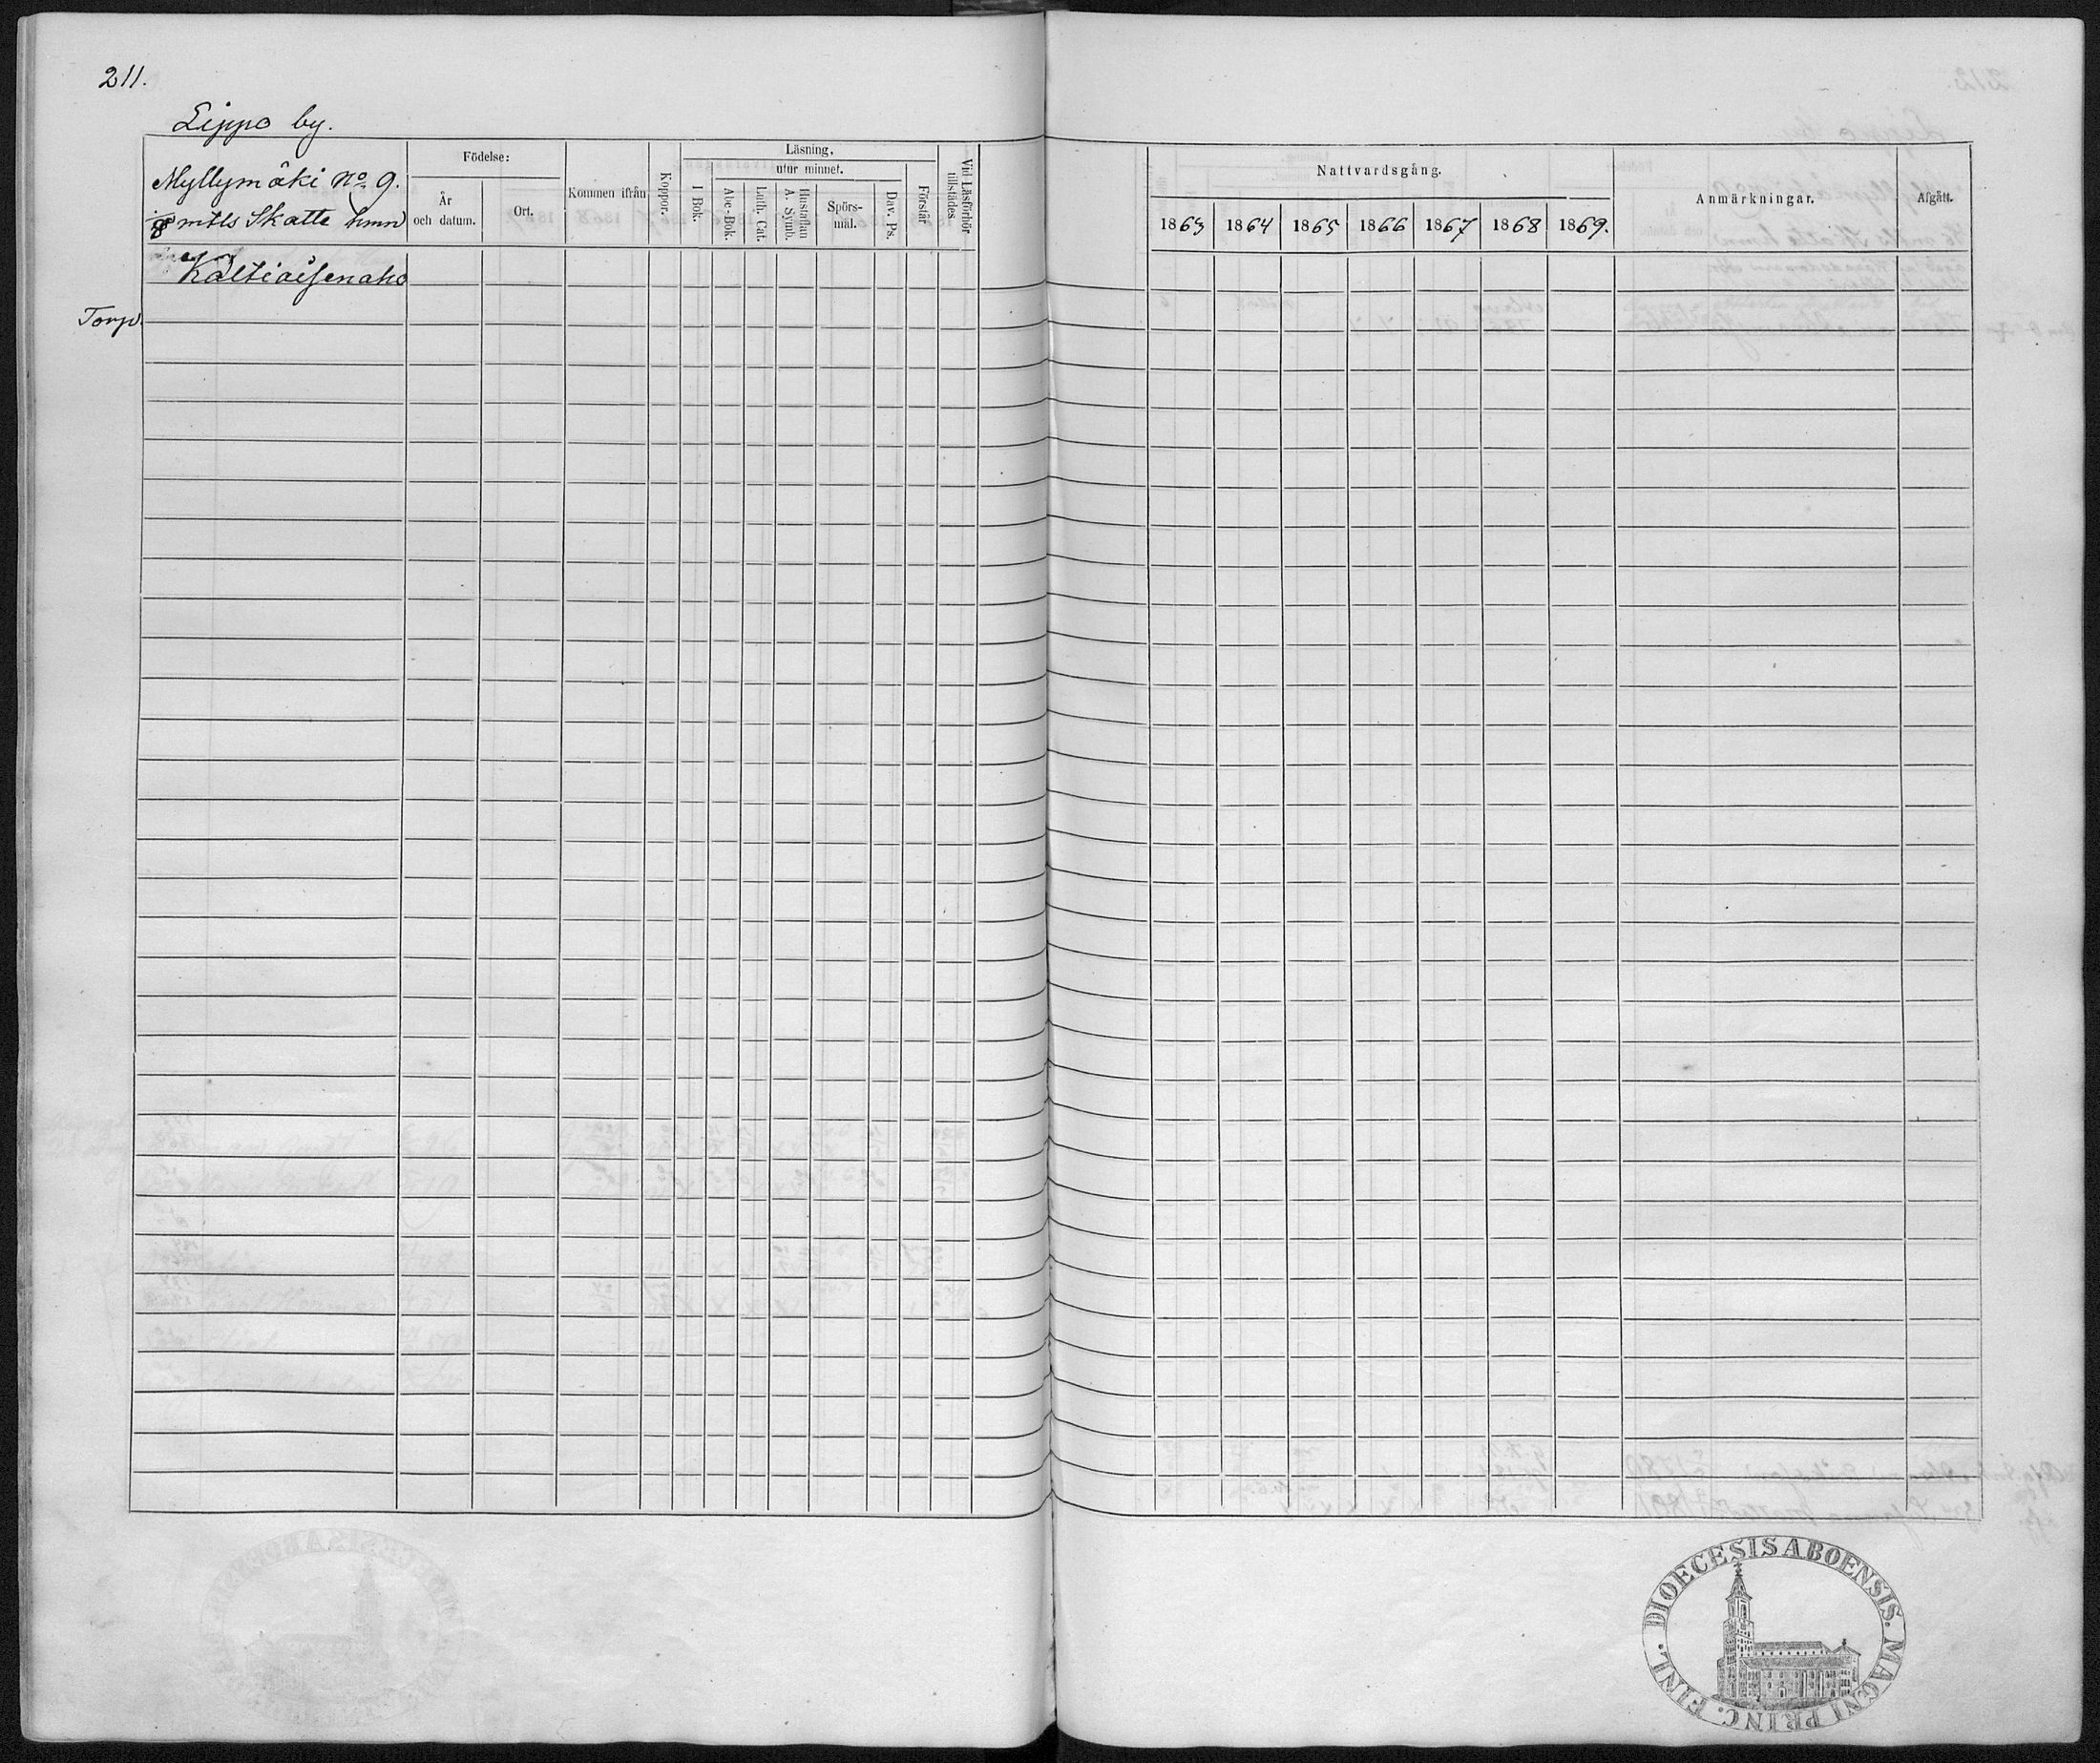 211.
Lippo by.
Myllymäki No 9.
mtls Skatte hmn
Kältiäisenaho
Torp.
Födelse:
År och datum.
Ort.
Kommen ifrån
Koppor.
Läsning.
utur minnet.
I Bok.
Abc-Bok.
Luth. Cat.
Hustaflan
A. Symb.
Spörs-
mål.
Dav. Ps.
Förstår
Vid Läsförhör
tillstädes
Nattvardsgång.
1863 1864 1865 1866 1867 1868 1869.
Anmärkningar.
Afgått.
DIOECESIS ABOENSIS. MAGNI PRINC. FINL.